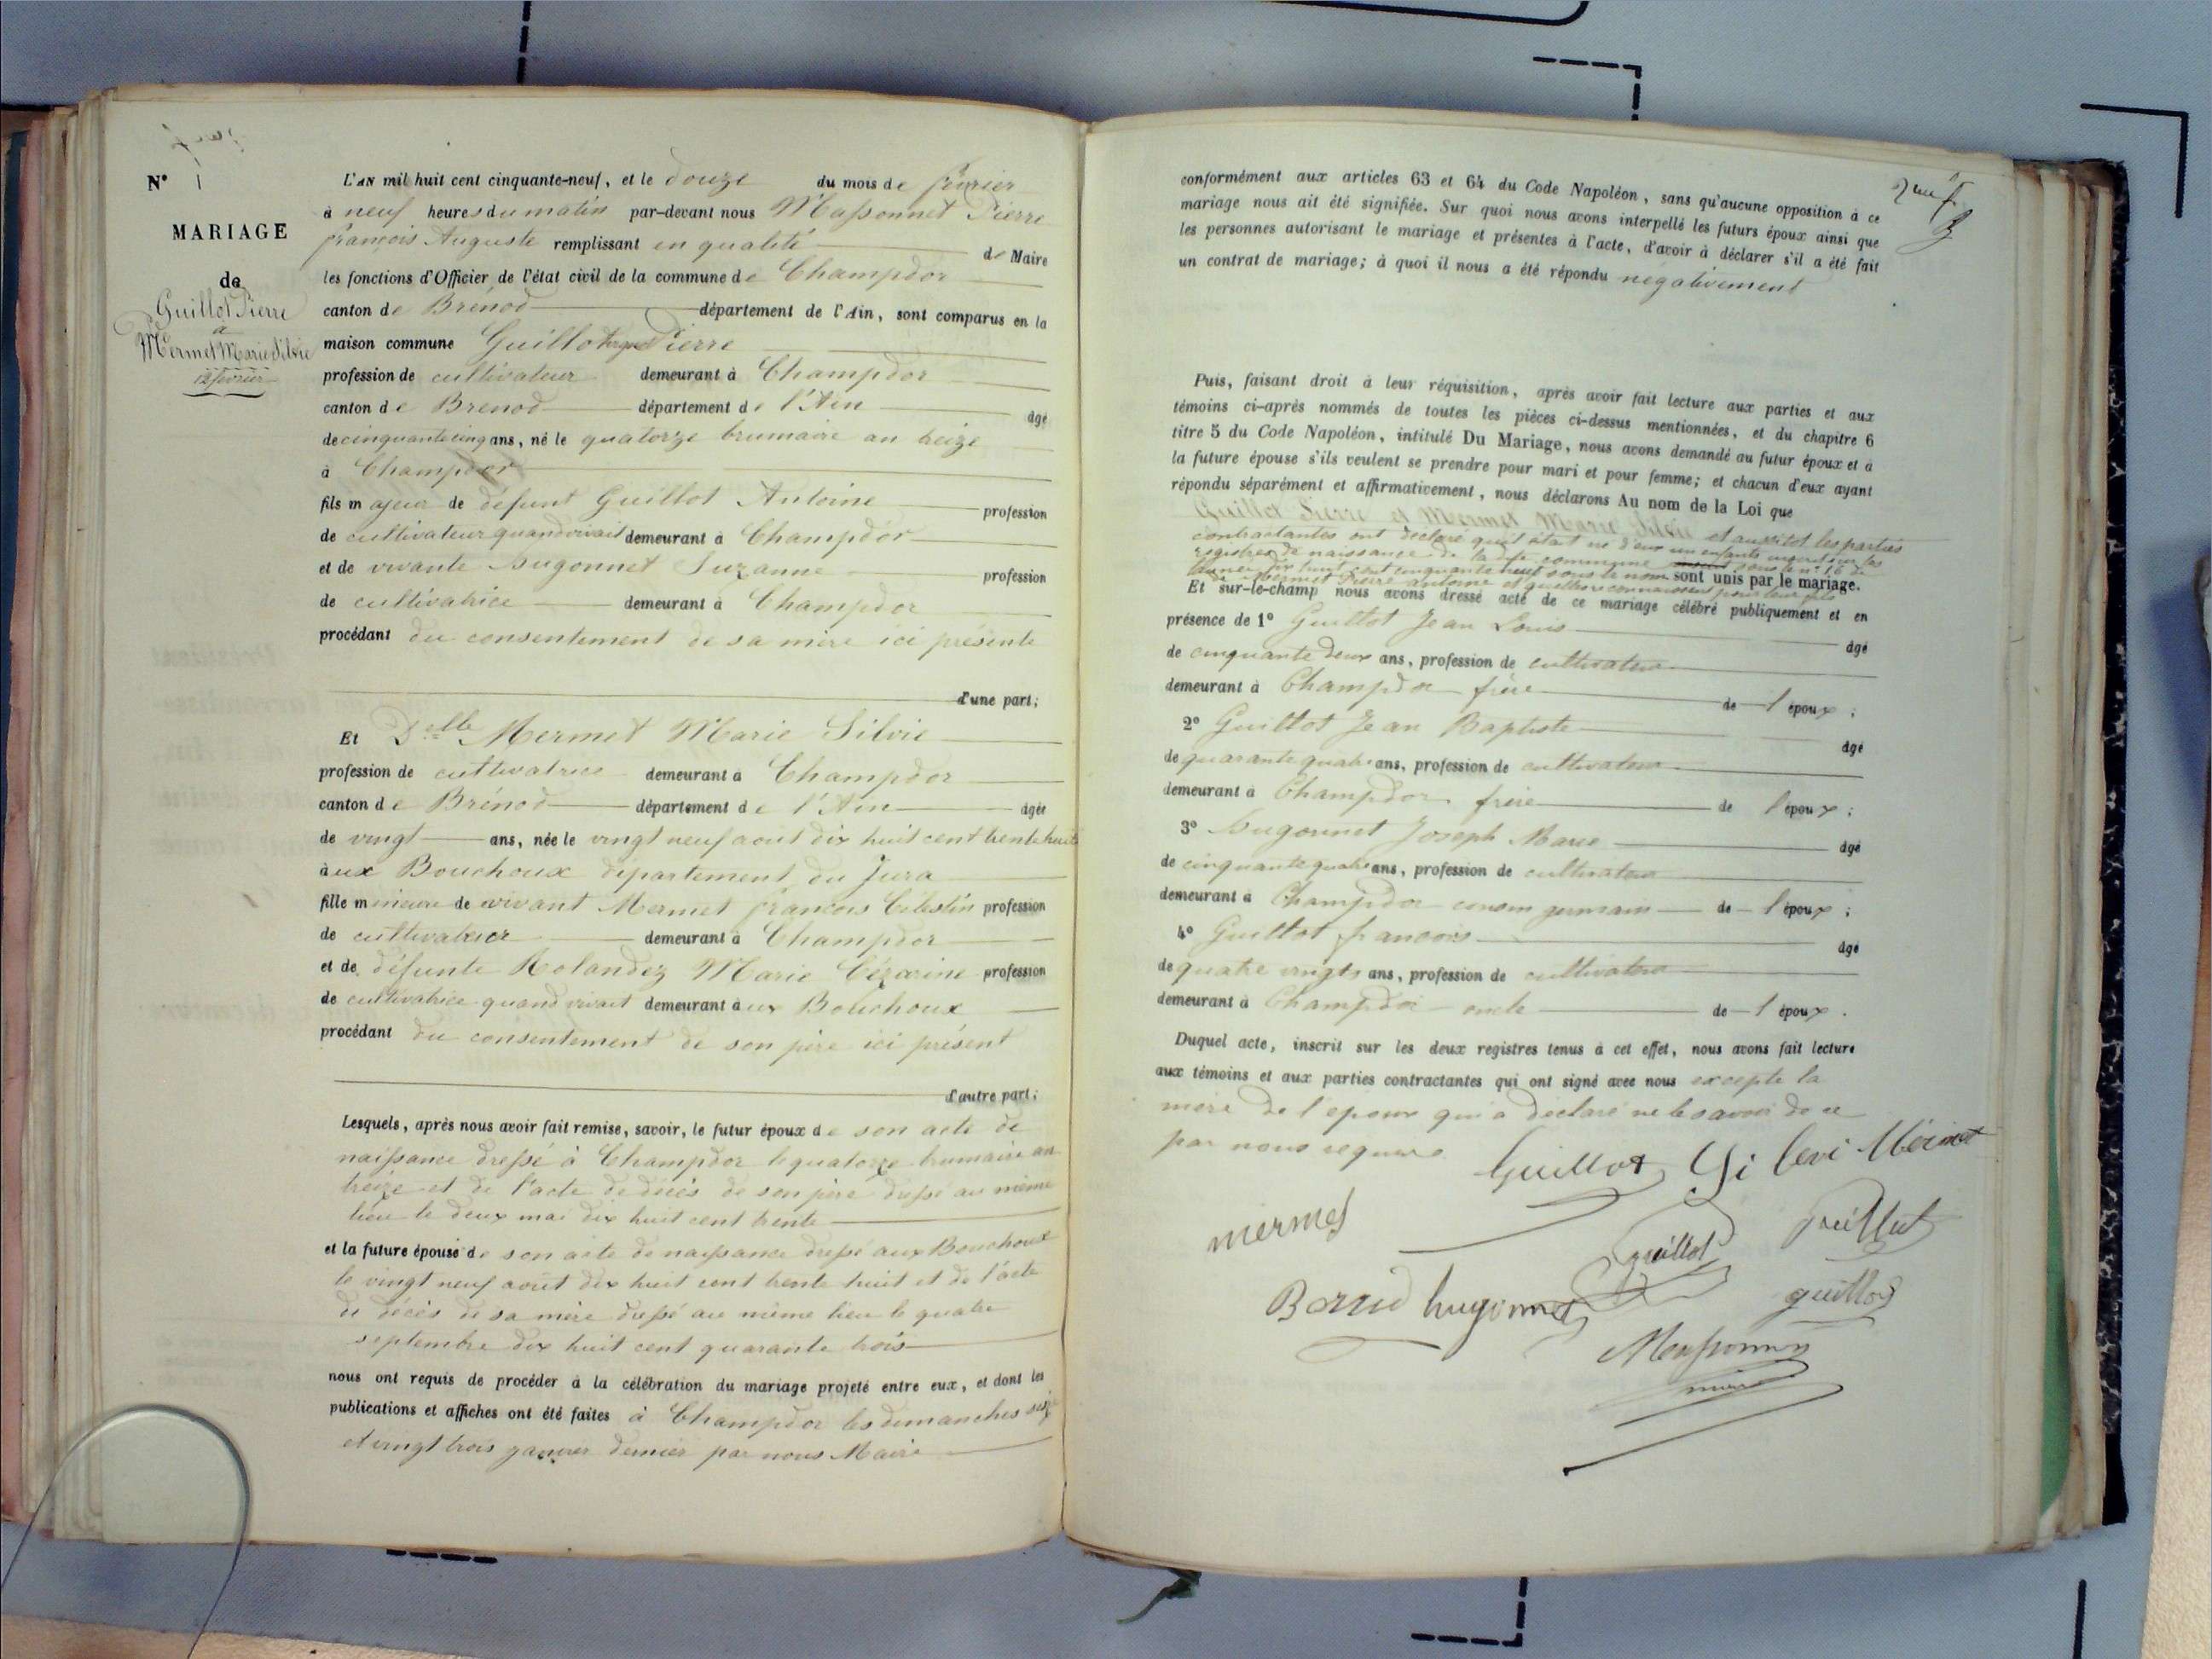 N° 1
MARIAGE
de
Guillot Pierre
a
Mermet Marie Silvie
12 février
L'AN mil huit cent cinquante-neuf, et le douze du mois de février
à neuf heures du matin par-devant nous Massonnet Pierre
françois Auguste remplissant en qualité de Maire
les fonctions d'Officier de l'état civil de la commune de Champdor
canton de Brénod département de l'Ain, sont comparus en la
maison commune Guillot Pierre
profession de cultivateur demeurant à Champdor
canton de Brenod département de l'Ain âgé
de cinquante cinq ans, né le quatorze brumaire an treize
à Champdor
fils majeur de défunt Guillot Antoine profession
de cultivateur quand vivait demeurant à Champdor
et de vivante hugonnet Suzanne profession
de cultivatrice demeurant à Champdor
procédant du consentement de sa mère ici présente
d'une part;
Et Delle Mermet Marie Silvie
profession de cultivatrice demeurant à Champdor
canton de Brénod département de l'Ain âgée
de vingt ans, née le vingt neuf août dix huit cent trente huit
à ux Bouchoux département du Jura
fille mineure de vivant Mermet françois Célestin profession
de cultivateur demeurant à Champdor
et de défunte Rolandez Marie Cézarine profession
de cultivatrice quand vivait demeurant à ux Bouchoux
procédant du consentement de son père ici présent
d'autre part;
Lesquels, après nous avoir fait remise, savoir, le futur époux de son acte de
naissance dressé à Champdor le quatorze brumaire an
treize et de l'acte de décès de son père dressé au même
lieu le deux mai dix huit cent trente
et la future épouse de son acte de naissance dressé aux Bouchoux
le vingt neuf août dix huit cent trente huit et de l'acte
de décès de sa mère dressé au même lieu le quatre
septembre dix huit cent quarante trois
nous ont requis de procéder à la célébration du mariage projeté entre eux, et dont les
publications et affiches ont été faites à Champdor les dimanches seize
et vingt trois janvier dernier par nous Maire
conformément aux articles 63 et 64 du Code Napoléon, sans qu'aucune opposition à ce
mariage nous ait été signifiée. Sur quoi nous avons interpellé les futurs époux ainsi que
les personnes autorisant le mariage et présentes à l'acte, d'avoir à déclarer s'il a été fait
un contrat de mariage; à quoi il nous a été répondu negativement
Puis, faisant droit à leur réquisition, après avoir fait lecture aux parties et aux
témoins ci-après nommés de toutes les pièces ci-dessus mentionnées, et du chapitre 6
titre 5 du Code Napoléon, intitulé Du Mariage, nous avons demandé au futur époux et à
la future épouse s'ils veulent se prendre pour mari et pour femme; et chacun d'eux ayant
répondu séparément et affirmativement, nous déclarons Au nom de la Loi que
Guillot Pierre et Mermet Marie Silvie et aussitot les parties
contractantes ont déclaré qu'il était né d'eux un enfant inscrit sur les
registres de naissance de la dite commune sous le n° 16 de
l'année dix huit cent cinquante neuf sous le nom sont unis par le mariage.
de Mermet Pierre antoine et qu'elles reconnaissent pour leur fils
Et sur-le-champ nous avons dressé acte de ce mariage célébré publiquement et en
présence de 1° Guillot Jean Louis âgé
de cinquante deux ans, profession de cultivateur
demeurant à Champdor frère de l'époux;
2° Guillot Jean Baptiste âgé
de quarante quatre ans, profession de cultivateur
demeurant à Champdor frère de l'époux;
3° hugonnet Joseph Marie âgé
de cinquante quatre ans, profession de cultivateur
demeurant à Champdor cousin germain de l'époux;
4° Guillot françois âgé
de quatre vingts ans, profession de cultivateur
demeurant à Champdor oncle de l'époux.
Duquel acte, inscrit sur les deux registres tenus à cet effet, nous avons fait lecture
aux témoins et aux parties contractantes qui ont signé avec nous excepte la
mère de l'epoux qui a déclaré ne le savoir de ce
par nous requise
Guillot Silvi Mermet
mermet guillot guillot
hugonnet guillot
Massonnet
maire